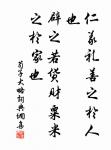 仁義禮善之於人
也
辟之若貨財粟米
之於家也
荀子大略詞典網喜